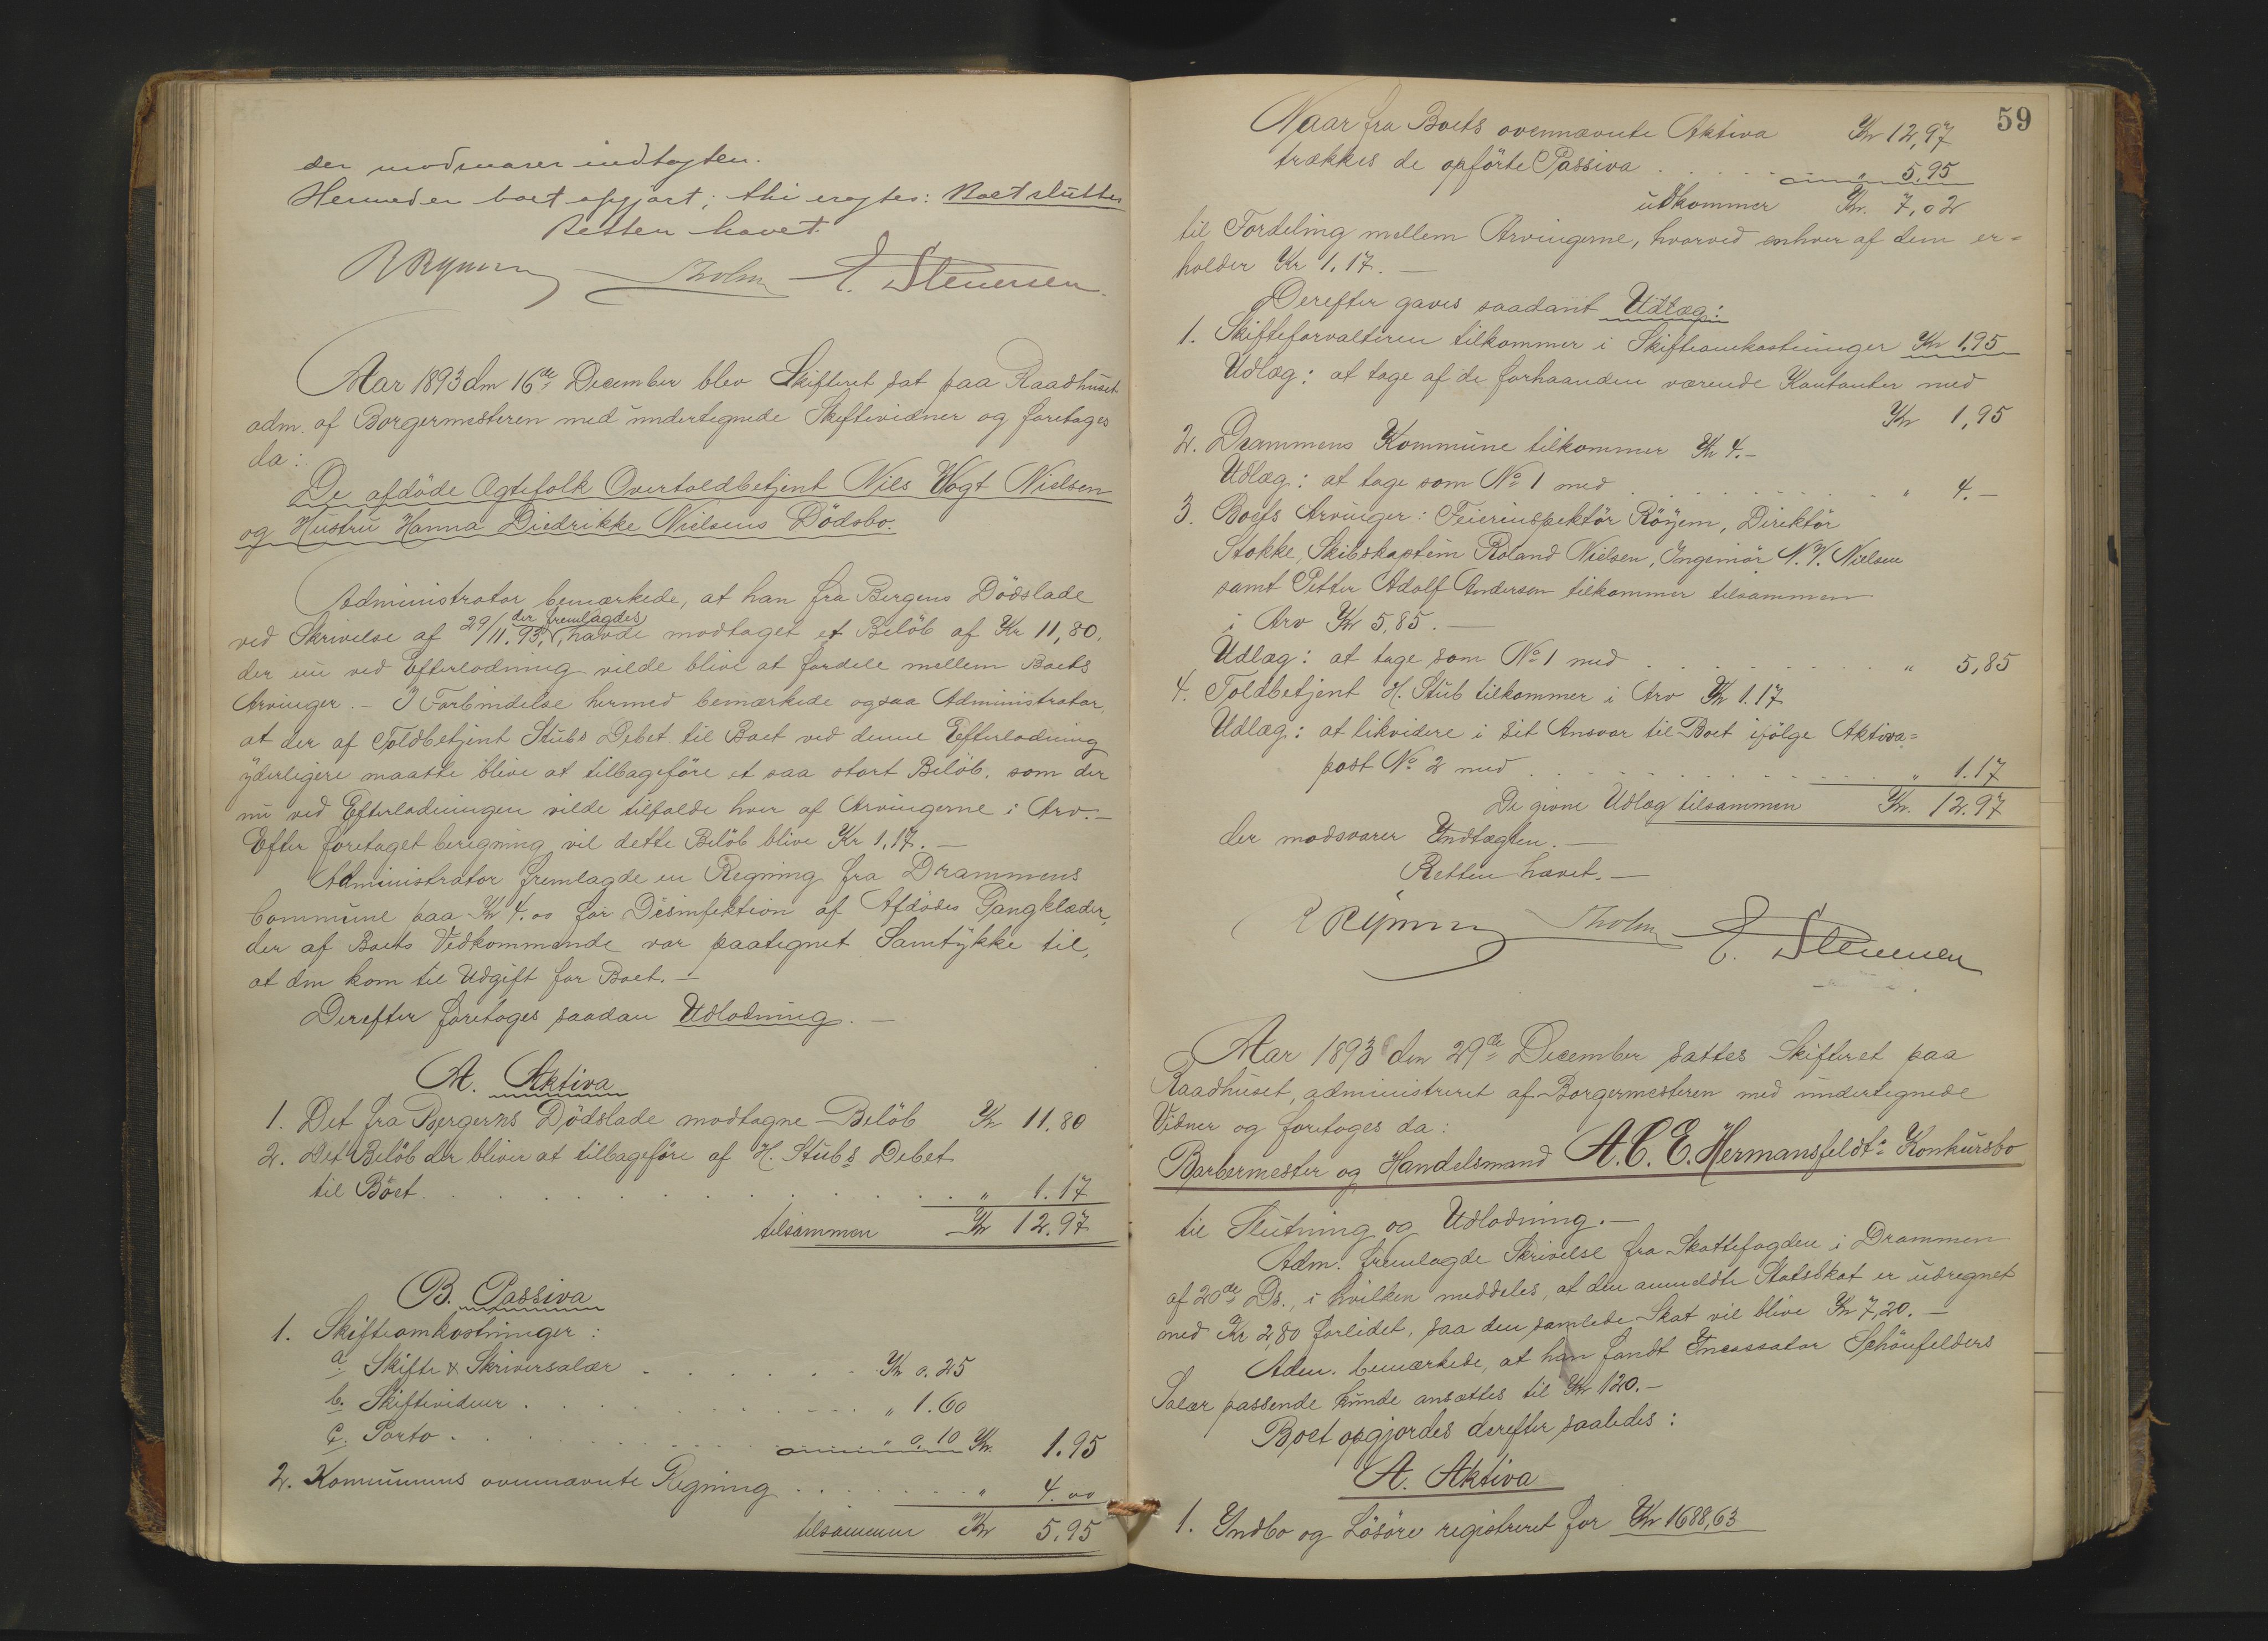 der modsvarer indtægten.
Hermed er boet opgjort; thi eragtes: Boet sluttes
Retten hævet.
E. Stenersen.
Aar 1893 den 16de December blev Skifteret sat paa Raadhuset
adm. af Borgermesteren med undertegnede Skiftevidner og foretages
da:
De afdöde Ægtefolk Overtoldbetjent Nils Vogt Nielsen
og Hustru Hanna Diedrikke Nielsens Dödsbo.
Administrator bemærkede, at han fra Bergens Dödslade
der fremlagdes
ved Skrivelse af 29/11.93, havde modtaget et Belöb af Kr 11,80,
der nu ved Efterlodning vilde blive at fordele mellem Boets
Arvinger. – I Forbindelse hermed bemærkede ogsaa Administrator,
at der af Toldbetjent Stubs Debet til Boet ved denne Efterlodning
yderligere maatte blive at tilbageföre et saa stort Belöb, som der
nu ved Efterlodningen vilde tilfalde hver af Arvingerne i Arv. –
Efter foretaget beregning vil dette Belöb blive Kr 1,17. –
Administrator fremlagde en Regning fra Drammens
Commune paa Kr 4.00 for Desinfektion af Afdödes Gangklæder,
der af Boets Vedkommende var paategnet Samtykke til,
at den kom til Udgift for Boet. –
Derefter foretoges saadan Udlodning. –
A. Aktiva
1. Det fra Bergens Dödslade modtagne Belöb Kr 11.80
2. Det Belöb der bliver at tilbageföre af H. Stubs Debet
til Boet . . . . . . . . . . . . " 1.17
tilsammen Kr 12.97
B. Passiva
1. Skifteomkostninger:
a. Skifte & Skriversalær . . . . . . Kr 0.25
b. Skiftevidner . . . . . . . . . . " 1.60
c. Porto . . . . . . . . " 0.10 Kr. 1.95
2. Kommunens ovennævnte Regning . . . . . . . " 4.00
tilsammen Kr 5.95
59
Naar fra Boets ovennævnte Aktiva Kr 12,97
trækkes de opförte Passiva . . . . . 5.95
udkommer Kr. 7,02
til Fordeling mellem Arvingerne, hvorved enhver af dem er=
holder Kr 1.17. –
Derefter gaves saadant Udlæg:
1. Skifteforvalteren tilkommer i Skifteomkostninger Kr 1.95
Udlæg: at tage af de forhaanden værende Kontanter med
Kr 1,95
2. Drammens Kommune tilkommer Kr 4.–
Udlæg: at tage som No 1 med . . . . . . . . . . " 4.–
3. Boets Arvinger: Feierinspektör Röyem, Direktör
Stokke, Skibskaptein Roland Nielsen, Ingeniör N.V. Nielsen
samt Petter Adolf Andersen tilkommer tilsammen
i Arv Kr 5,85. –
Udlæg: at tage som No 1 med . . . . . . . . . . " 5,85
4. Toldbetjent H. Stub tilkommer i Arv Kr 1.17
Udlæg: at likvidere i sit Ansvar til Boet ifölge Aktiva=
post No 2 med . . . . . . . . . . . . " 1.17
De givne Udlæg tilsammen Kr. 12.97
der modsvarer Indtægten. –
Retten hævet. –
E. Stenersen
Aar 1893 den 29de December sattes Skifteret paa
Raadhuset, administreret af Borgermesteren med undertegnede
Vidner og foretoges da:
Barbermester og Handelsmand A.C.E. Hermansfeldts Konkursbo
til Slutning og Udlodning. –
Adm. fremlagde Skrivelse fra Skattefogden i Drammen
af 20de Ds., i hvilken meddeles, at den anmeldte Statsskat er udregnet
med Kr 2,80 forlidet, saa den samlede Skat vil blive Kr 7,20. –
Adm. bemærkede, at han fandt Incassator Schönfelders
Salær passende kunde ansættes til Kr 120. –
Boet opgjordes derefter saaledes:
A. Aktiva
1. Indbo og Lösöre registreret for Kr 1688,63